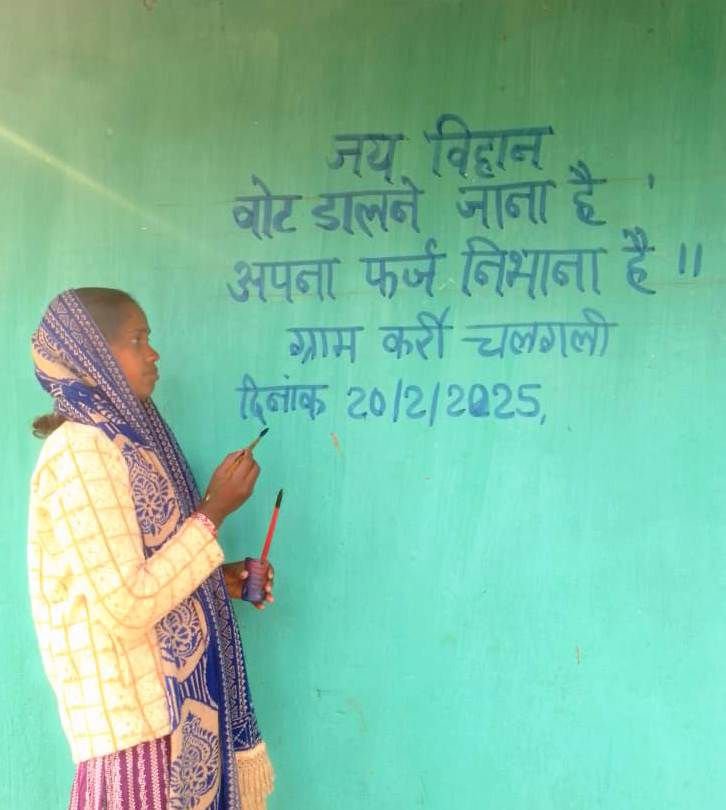 जय विहान
वोट डालने जाना है ।
अपना फर्ज निभाना है ॥
ग्राम कर्री चलगली
दिनांक 20/2/2025,